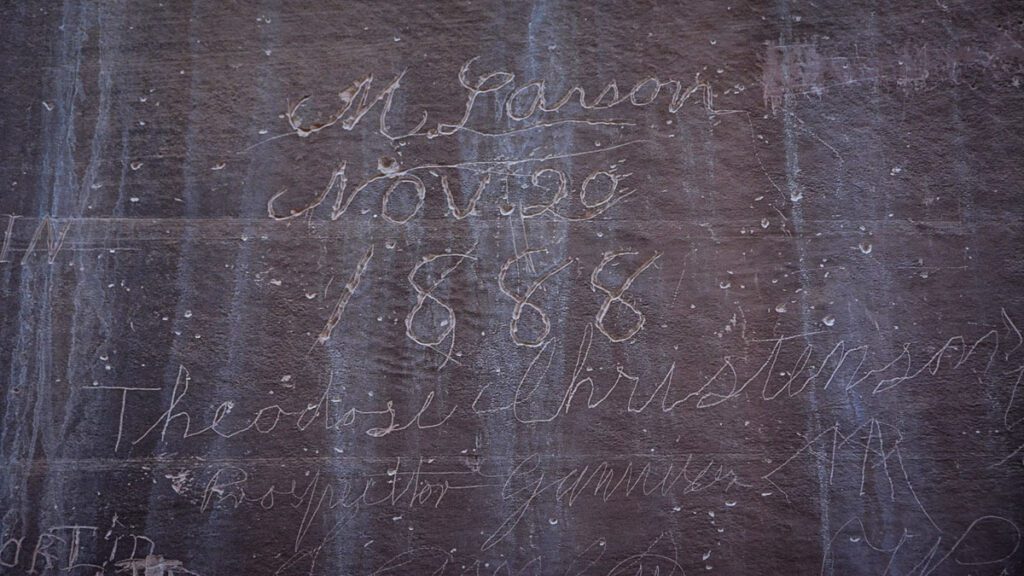 M Larson
Nov. 20
1888
IN
Theodose Christenson
Prospector Gunnison